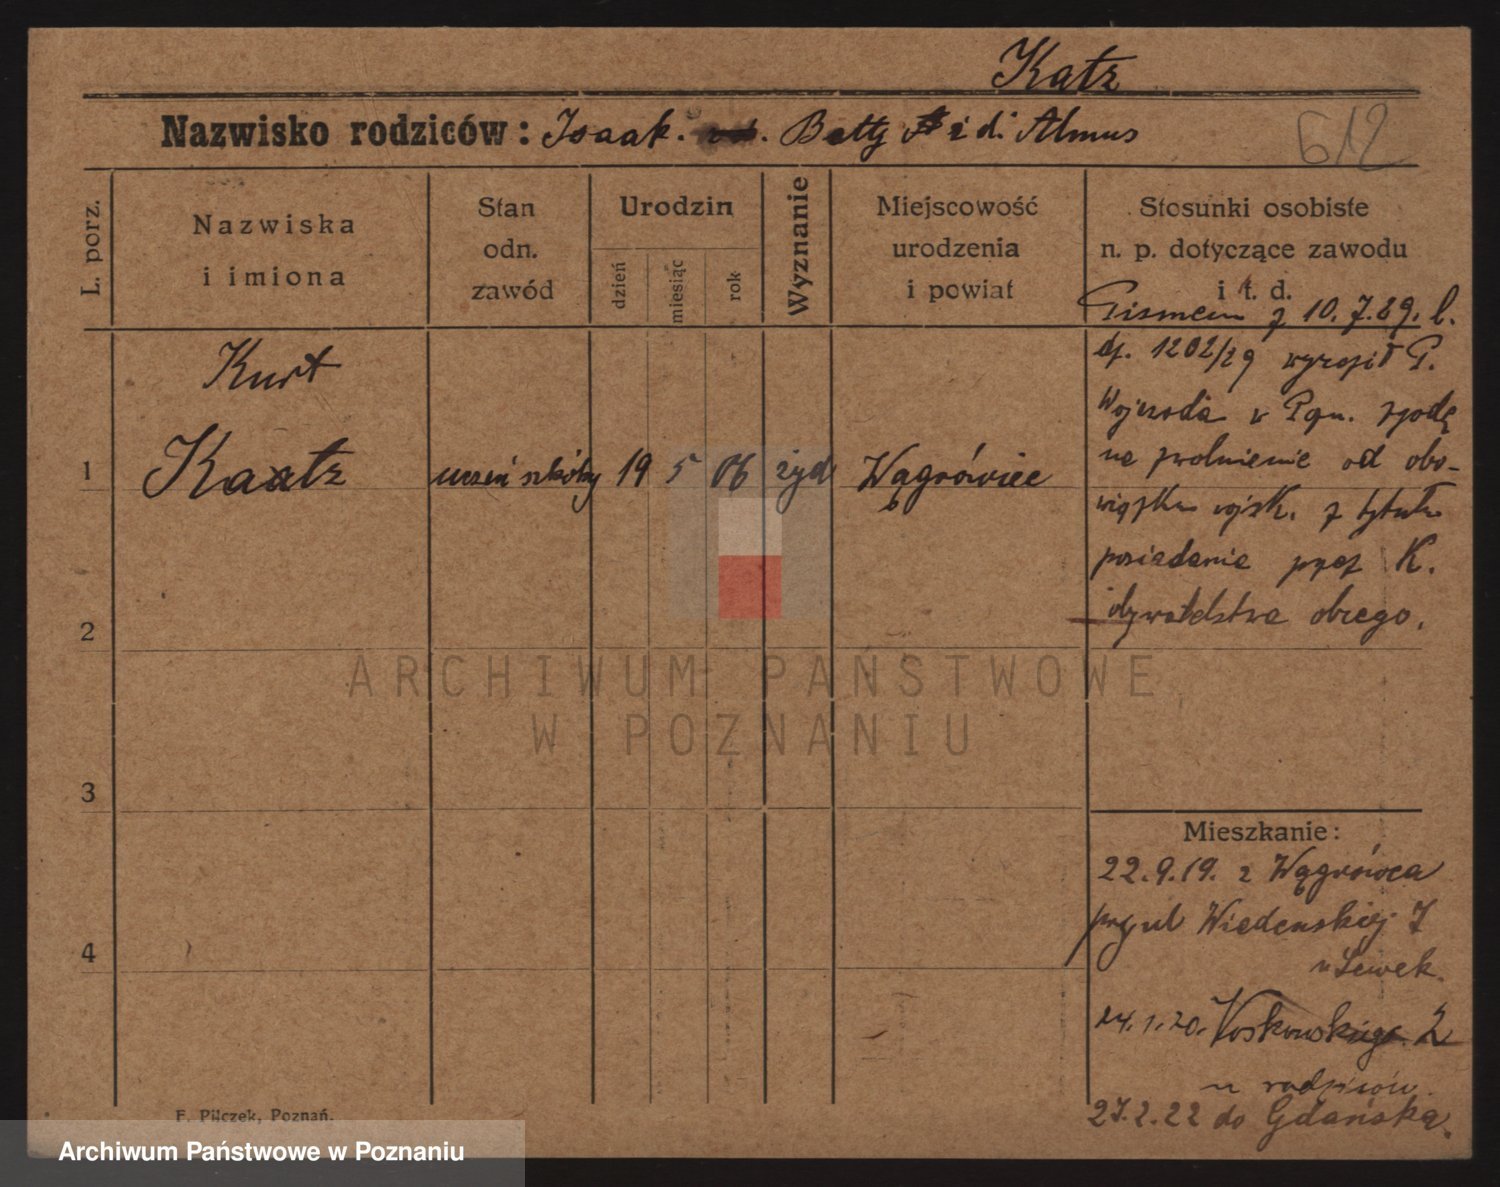 Katz
Nazwisko rodziców: Isaak. Betty z d. Almus
612
L. porz.
Nazwiska
i imiona
Stan
odn.
zawód
Urodzin
dzień
miesiąc
rok
Wyznanie
Miejscowość
urodzenia
i powiat
Stosunki osobiste
n. p. dotyczące zawodu
i t. d.
Pismem z 10.7.29. l.
dz. 1202/29 wyraził P.
Wojewoda w Pozn. zgodę
na zwolnienie od obo-
wiązku wojsk. z tytułu
posiadania przez K.
obywatelstwa obcego.
Kurt
1 Kaatz uczeń szkólny 19 5 06 żyd Wągrówiec
2
3
4
Mieszkanie:
22.9.19. z Wągrówca
przy ul Wiedenskiej 7
u Lewek.
24.1.20. 2
u rodziców.
27.2.22 do Gdańska.
F. Pilczek, Poznań.
ARCHIWUM PAŃSTWOWE
W POZNANIU
Archiwum Państwowe w Poznaniu